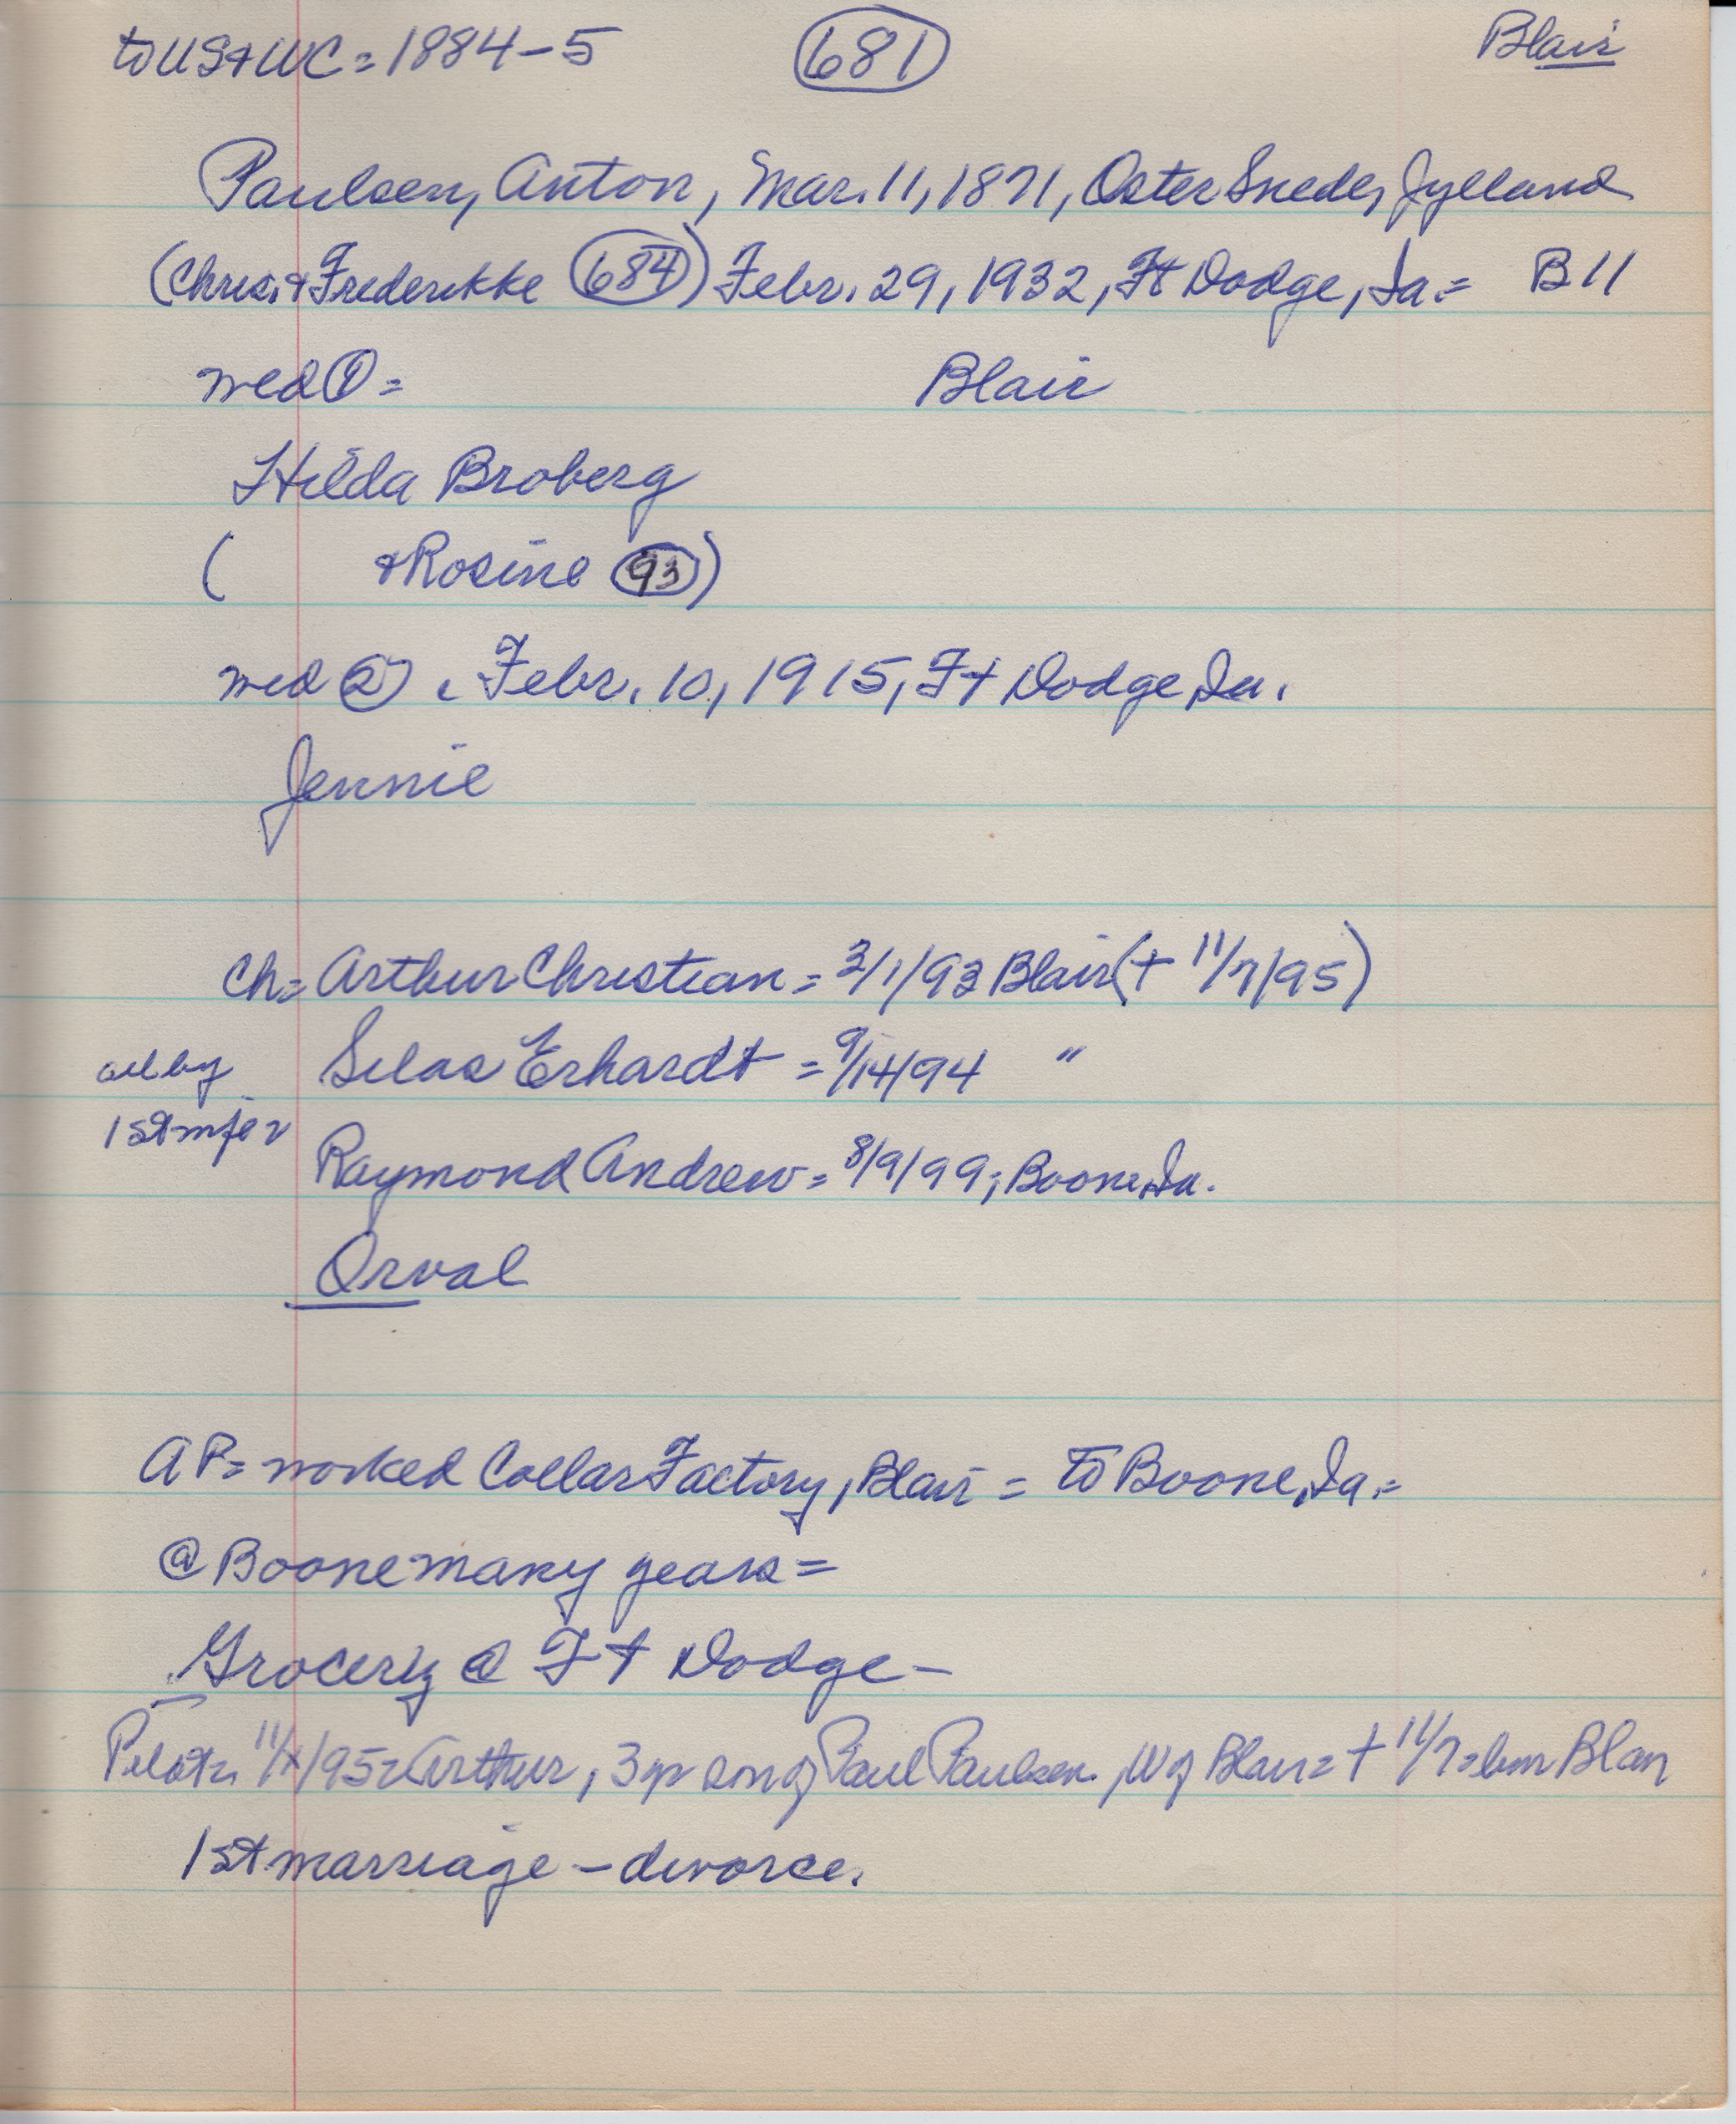 to US & WC = 1884-5 681 Blair
Paulsen, Anton, Mar. 11, 1871, Oster Snede, Jylland
(Chris. & Frederikke 684) Febr. 29, 1932, Ft Dodge, Ia. = B11
med ① = Blair
Hilda Broberg
( & Rosine 93)
med ② Febr. 10, 1915, Ft Dodge, Ia.
Jennie
Ch = Arthur Christian = 3/1/93 Blair († 11/7/95)
Silas Erhardt = 9/14/94 "
all by
1st
Raymond Andrew = 8/9/99, Boone, Ia.
Orval
AP = worked Collar Factory, Blair = to Boone, Ia. =
@ Boone many years =
Grocery @ Ft Dodge -
Pilot = 95 = Arthur, 3 yr son of Paul Paulsen, W of Blair = † 11/7 = Blair
1st marriage - divorce.